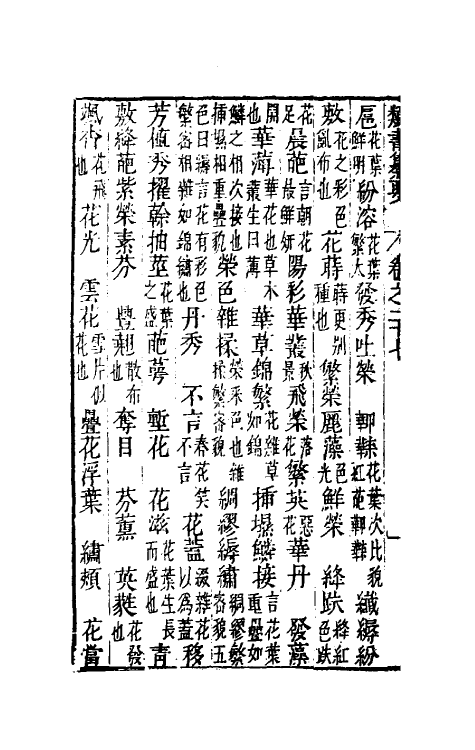 類書纂要 卷之二十七
葩花葉鮮明紛溶花葉繁大發秀吐榮 花葉次比貌紅葩 纖縟紛
敷花之彩色亂布也花蒔蒔更別種也繁榮麗藻色光鮮榮 絳趺絳紅色趺
花足晨葩言朝花最鮮妍陽彩華叢秋景飛榮落花繁英惡花華丹 發藻
開也華薄華花也草木叢生曰薄華草錦繁花雜草如錦插堨鱗接言花葉重疊如
鱗之相次接也插堨相重疊貌榮色雜揉榮采色也雜揉繁密貌綢繆縟繡綢繆繁密貌五
色曰繡言花有彩色繁密相雜如錦繡也丹秀 不言春花笑不言花蓋綴雜花以為蓋移
芳植秀擢幹抽莖花葉之盛葩萼 塹花 花滋花葉生長而盛也青
敷絳葩紫榮素芬 豐翹散布也奪目 芬薰 英蕤花發也
颯香花飛也花光 雲花雪片似花也疊花浮葉 繡頰 花當